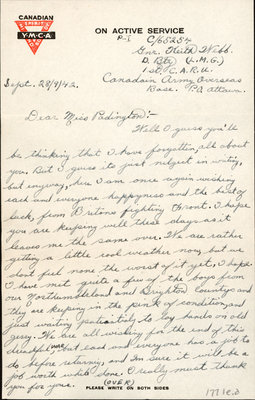 CANADIAN
Y·M·C·A
ON ACTIVE SERVICE
C/65254
Gnr. Keith Webb.
D. Bty (L.M.G.)
1st C.A.R.U.
Canadian Army Overseas
Base. P.O. Ottawa.
Sept. 28/9/42.
Dear Miss Padington:-
Well I guess you'll
be thinking that I have forgotten all about
you. But I guess its just neglect in writing,
but anyway, here I am once again wishing
each and everyone happyness and the best of
luck, from Britons fighting Front. I hope
you are keeping well these days as it
leaves me the same over. We are rather
getting a little cool weather now, but we
dont feel none the worst of it yet, I hope
I have met quite a few of the boys from
our Northumberland and Brighton Countys and
they are keeping in the pink of condition, and
just waiting patiently to lay hands on old
gerry. We are all wishing for the end of this
dreadful war but each and everyone has a job to
do before returning, and I'm sure it will be a
job worth while done. I really must thank
you for yours.
(OVER)
PLEASE WRITE ON BOTH SIDES